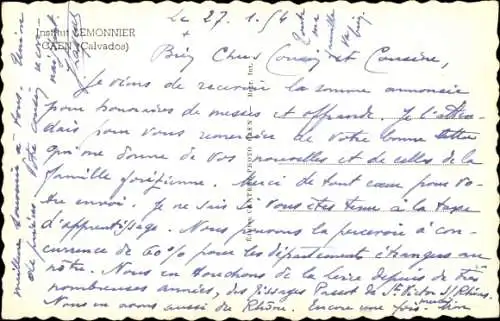 Institut LEMONNIER
CAEN (Calvados)
Le 27.1.54
+
Bien Chers Cousin et Cousine,
Je viens de recevoir la somme annoncée
pour honoraires de messes et offrande. Je l'atten-
dais pour vous remercier de votre bonne lettre
qui me donne de vos nouvelles et de celles de la
famille forézienne. Merci de tout cœur pour vo-
tre envoi. Je ne sais si vous êtes tenu à la taxe
d'apprentissage. Nous pouvons la percevoir à con-
currence de 60% pour les départements étrangers au
nôtre. Nous en touchons de la Loire depuis de très
nombreuses années, des Tissages Passot de St Victor s/Rhins.
Nous en avons aussi du Rhône. Encore une fois merci, mon
meilleur souvenir à tous. Union
de prières. Votre cousin recon-
naissant
Toute
ma
famille
va
bien